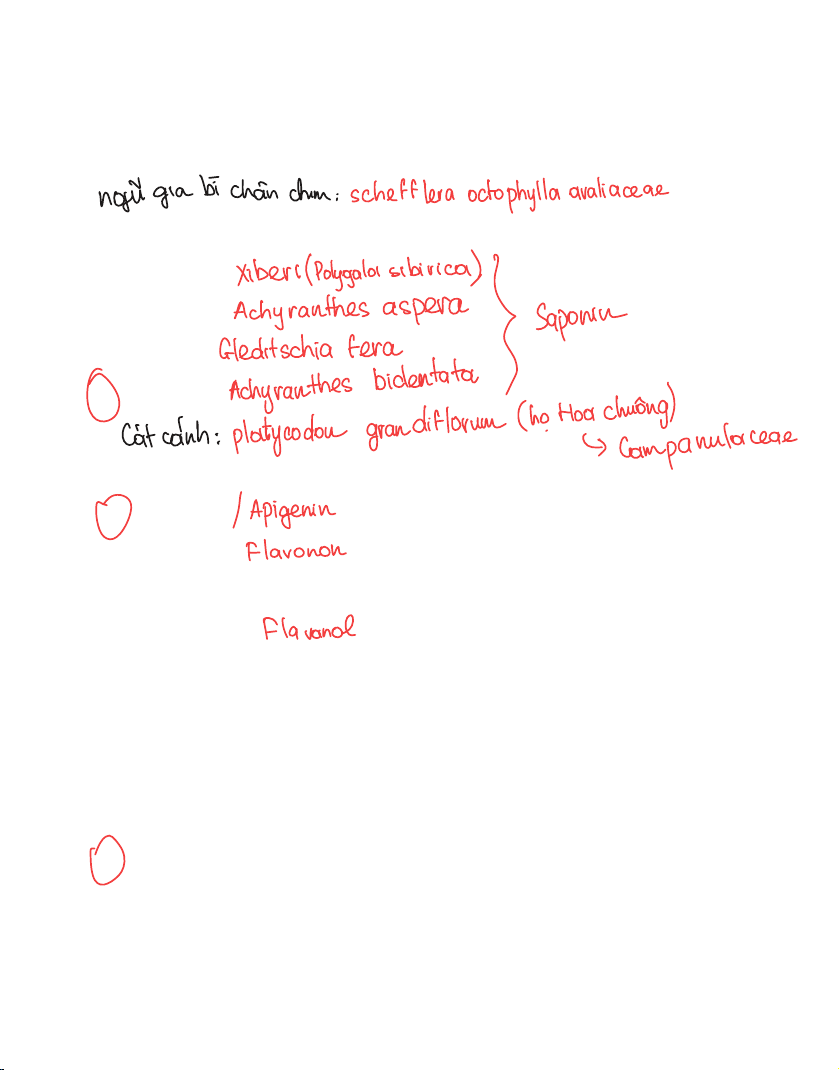 ngũ gia bì chân chim: schefflera octophylla avaliaceae
Xiberi (Polygala sibirica)
Achyranthes aspera
Saponin
Gleditschia fera
Achyranthes bidentata
Cát cánh: platycodon grandiflorum (họ Hoa chuông)
↳ Campanulaceae
/ Apigenin
Flavonon
Flavanol